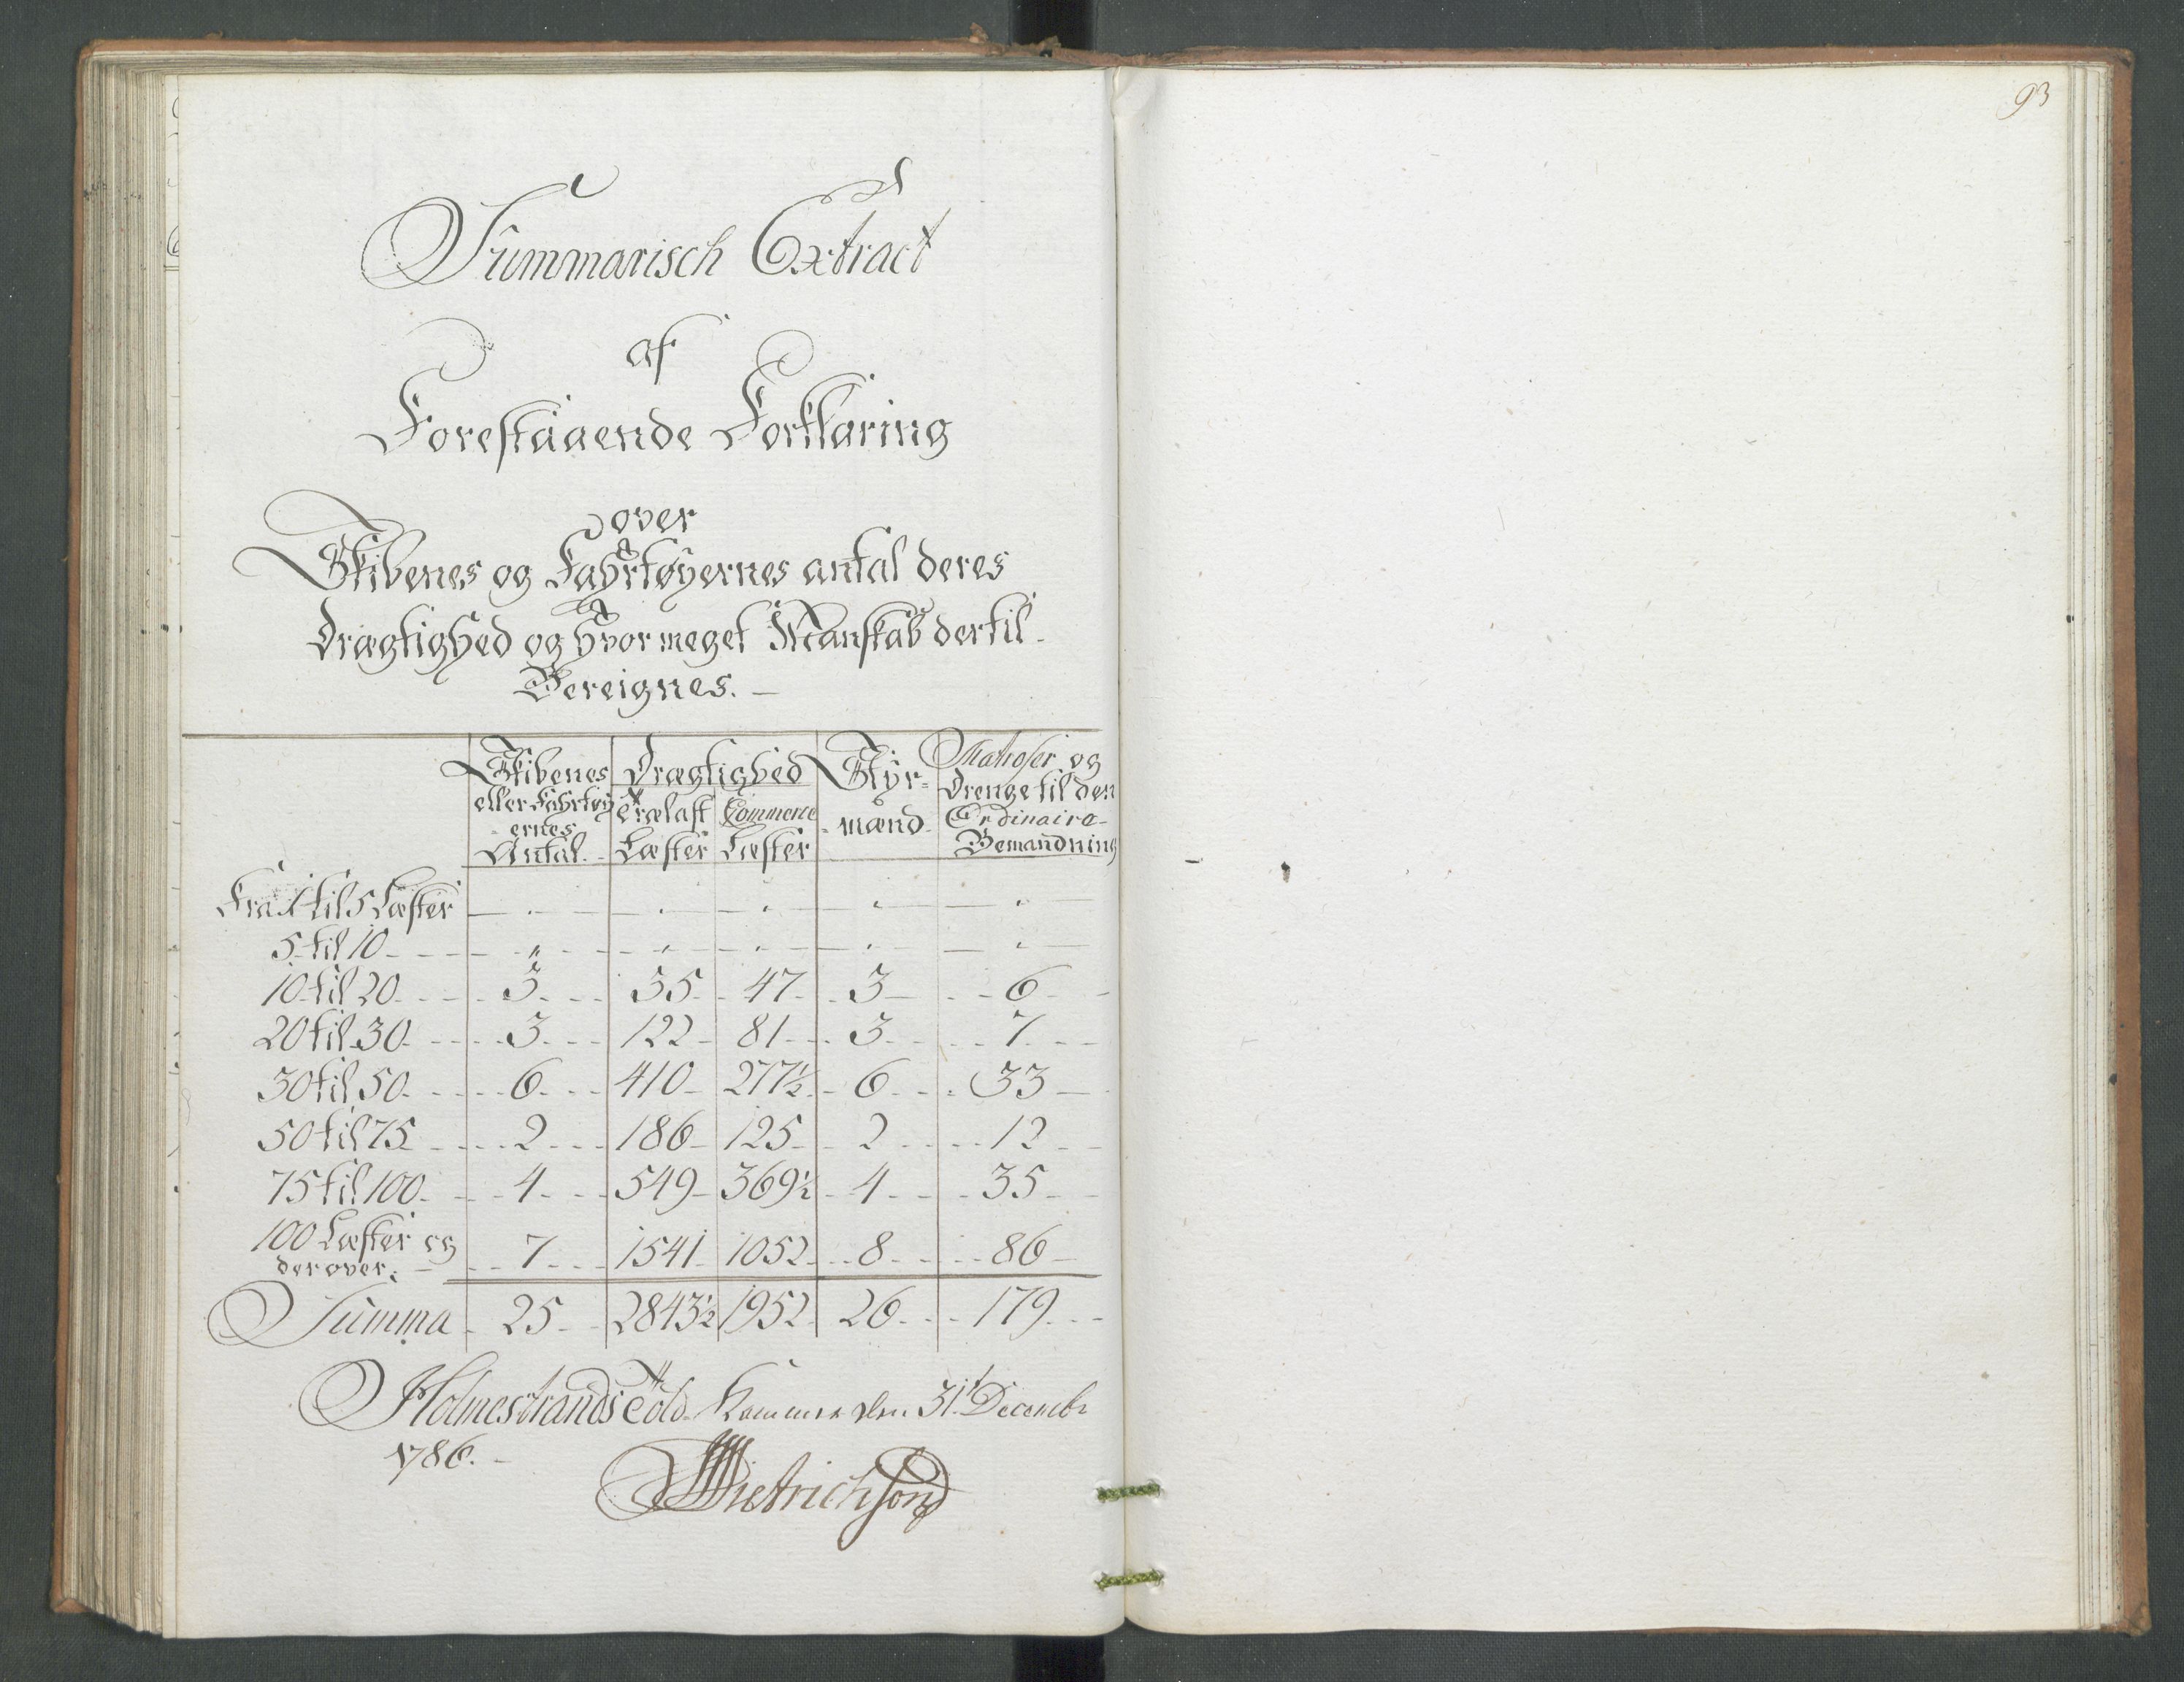 93
Summarisch Extract
af
Forestaaende Forklaring
over
Skibenes og Fahrtøyernes antal deres
Drægtighed og hvormeget Manskab dertil
Bereignes. -
Skibenes eller Fahrtøyernes Antal. | Drægtighed Trælast Læster | Commerce Læster | Styrmænd | Matroser og Drenge til den Ordinaire Bemandning
Fra 1 til 5 Læster - . - . - . - . - .
5 til 10 - " - . - . - . - .
10 til 20 3 35 47 3 6
20 til 30 3 122 81 3 7
30 til 50 6 410 277½ 6 33
50 til 75 2 186 125 2 12
75 til 100 4 549 369½ 4 35
100 Læster og
derover. 7 1541 1052 8 86
Summa 25 2843½ 1952 26 179
Holmestrands Told Kammer den 31t Decembr
1786. -
Dietrichson